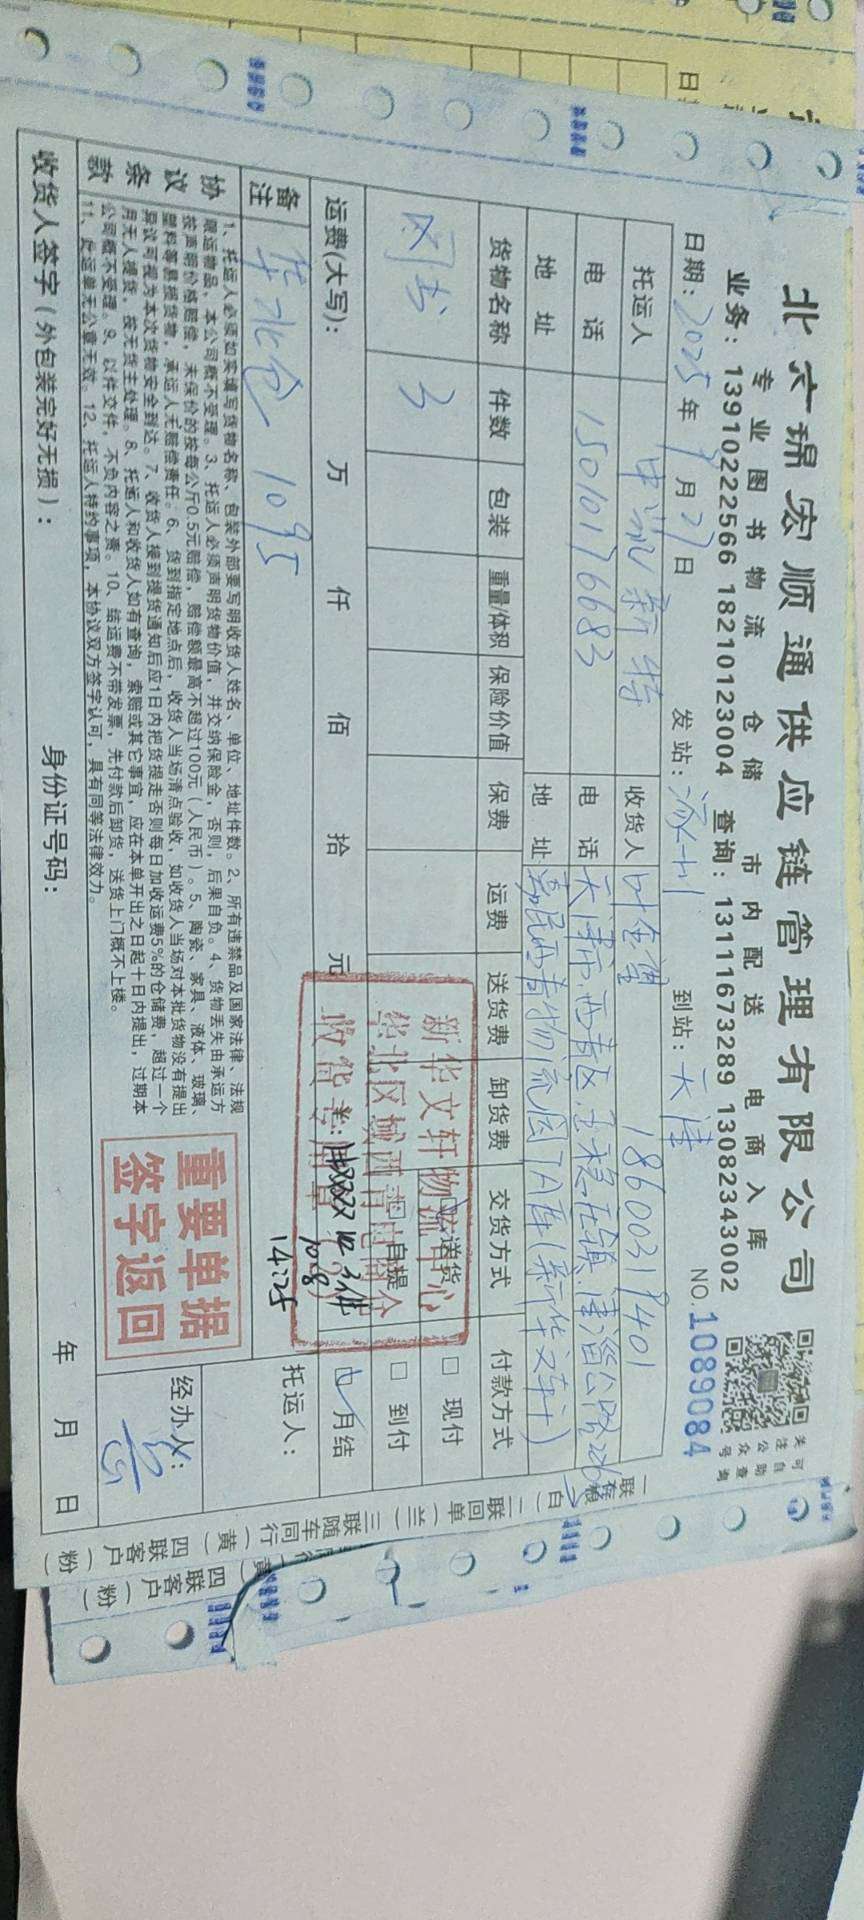 北京锦宏顺通供应链管理有限公司
专业图书物流 仓储 市内配送 电商入库
业务：13910222566 18210123004 查询：13111673289 13082343002
关注公众号
可自助查询
日期：2025年 月27日 发站：涿州 到站：天津 NO.1089084
托运人 中流新特 收货人 叶金 18600319401
电话 15010176683 电话 天津市.西青区.王稳庄镇.津淄公路226
地址 地址 嘉民西青物流园7A库(新华文轩)
货物名称 件数 包装 重量/体积 保险价值 保费 运费 送货费 卸货费 交货方式 付款方式
图书 3 送货 □ 现付
□ 自提 □ 到付
运费(大写)： 万 仟 佰 拾 元 月结
新华文轩物流中心
华北区域西青
收货专用章
收 3件
14:25
备注 华北仓 1095 托运人：
协议条款
1、托运人必须如实填写货物名称、包装外部要写明收货人姓名、单位、地址件数。2、所有违禁品及国家法律、法规
限运物品，本公司概不受理。3、托运人必须声明货物价值，并交纳保险金，否则，后果自负。4、货物丢失由承运方
按声明价格赔偿，未保价的按每公斤0.5元赔偿，赔偿额最高不超过100元（人民币）。5、陶瓷、家具、液体、玻璃、
塑料等易损货物，承运人无赔偿责任。6、货到指定地点后，收货人当场清点验收，如收货人当场对本批货物没有提出
异议可视为本次货物安全到达。7、收货人接到提货通知后应1日内把货提走否则每日加收运费5%的仓储费，超过一个
月无人提货，按无货主处理。8、托运人和收货人如有查询，索赔或其它事宜，应在本单开出之日起十日内提出，过期本
公司概不受理。9、以件交件，不负内容之责。10、结运费不带发票，先付款后卸货，送货上门概不上楼。
11、此运单无公章无效。12、托运人特约事项，本协议双方签字认可，具有同等法律效力。
重要单据
签字返回
经办人：
收货人签字（外包装完好无损）： 身份证号码： 年 月 日
一联存根（白）二联回单（兰）三联随车同行（黄）四联客户（粉）
四联客户（粉）